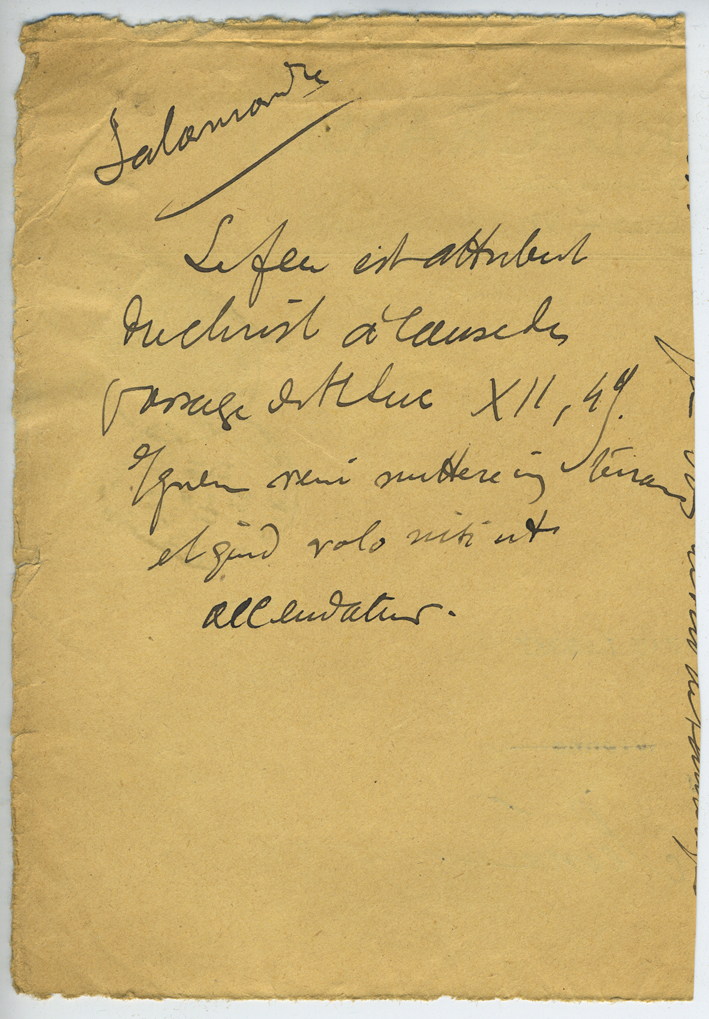 Salamandre
Le feu est attribut
du Christ à cause du
passage de St Luc XII, 49.
Ignem veni mittere in terram
et quid volo nisi ut
accendatur.